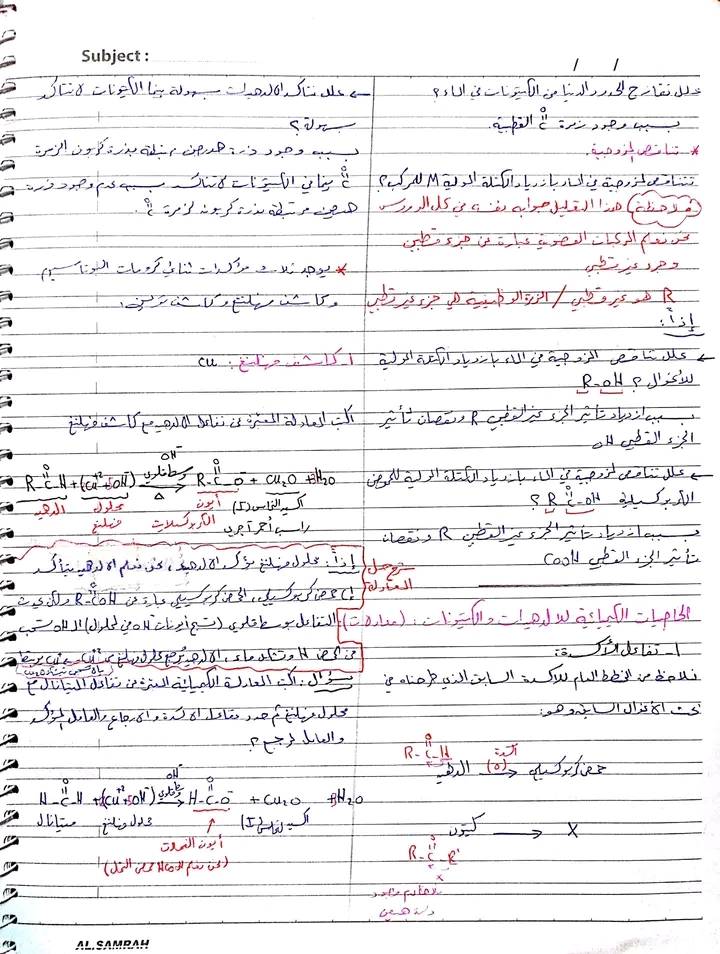 Subject :
/ /
علل تمازج الحدود الدنيا من الكيتونات في الماء؟
بسبب وجود زمرة C=O القطبية.
* تناقص المزوجية.
تتناقص المزوجية في الماء بازدياد الكتلة المولية M للمركب؟
ملاحظة هذا التعليل جوابه نفسه في كل الدروس
نحن نعلم المركبات العضوية عبارة عن جزء قطبي
وجزء غير قطبي
R هو غير قطبي / الزمرة الوظيفية هي جزء غير قطبي
إذاً:
← علل تناقص المزوجية في الماء بازدياد الكتلة المولية
للأغوال؟ R-OH
بسبب ازدياد تأثير الجزء غير القطبي R ونقصان تأثير
الجزء القطبي OH
← علل تناقص المزوجية في الماء بازدياد الكتلة المولية للحموض
الكربوكسيلية R-C(=O)-OH ؟
بسبب ازدياد تأثير الجزء غير القطبي R ونقصان
تأثير الجزء القطبي COOH
الخاصيات الكيميائية للألدهيدات والكيتونات: (معادلات)
1- تفاعل الأكسدة:
نلاحظ من المخطط العام للأكسدة السابق الذي طرحناه في
بحث الأغوال السابق وهو:
R-C(=O)-H
ألدهيد → أكسدة (O) حمض كربوكسيلي
كيتون → X
R-C(=O)-R'
x
وجود
ذرة هيدروجين
← علل تتأكسد الألدهيدات بسهولة بينما الكيتونات لا تتأكسد
بسهولة؟
بسبب وجود ذرة هدروجين مرتبطة بذرة كربون الزمرة
C=O بينما في الكيتونات لا تتأكسد بسبب عدم وجود ذرة
هدروجين مرتبطة بذرة كربون لزمرة C=O.
* يوجد ثلاث مؤكسدات ثنائي كرومات البوتاسيوم
وكاشف فهلنغ وكاشف تولن:
1- كاشف فهلنغ: Cu
اكتب المعادلة المعبرة عن تفاعل الألدهيد مع كاشف فهلنغ
R-C(=O)-H + (Cu²⁺ + 5OH⁻) → OH⁻ وسط قلوي Δ R-C(=O)-O⁻ + Cu₂O + 3H₂O
ألدهيد محلول فهلنغ أيون الكربوكسيلات أكسيد النحاس (I) راسب أحمر آجري
شرح المعادلة
إذاً: محلول فهلنغ مؤكسد الألدهيد، نحن نعلم الألدهيد يتأكسد
إلى حمض كربوكسيلي، الحمض كربوكسيلي عبارة عن R-C(=O)-OH ولكن بحدث
التفاعل بوسط قلوي (تسبح أيونات OH⁻ في المحلول) الـ OH تسحب
من الحمض H وتشكل ماء،
سؤال: اكتب المعادلة الكيميائية المعبرة عن تفاعل الميتانال مع
محلول فهلنغ ثم حدد تفاعل الأكسدة والإرجاع والعامل المؤكسد
والعامل المرجع؟
H-C(=O)-H + (Cu²⁺ + 5OH⁻) → OH⁻ وسط قلوي H-C(=O)-O⁻ + Cu₂O + 3H₂O
ميتانال محلول فهلنغ أكسيد النحاس (I)
أيون النملات
(نحن نعلم HCOOH حمض النمل)
AL.SAMRAH